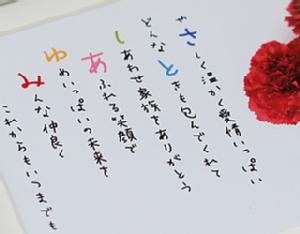 やさしく温かく愛情いっぱい
どんなときも包んでくれて
しあわせ家族をありがとう
あふれる笑顔で
ゆめいっぱいの未来を
みんな仲良く
これからもいつまでも